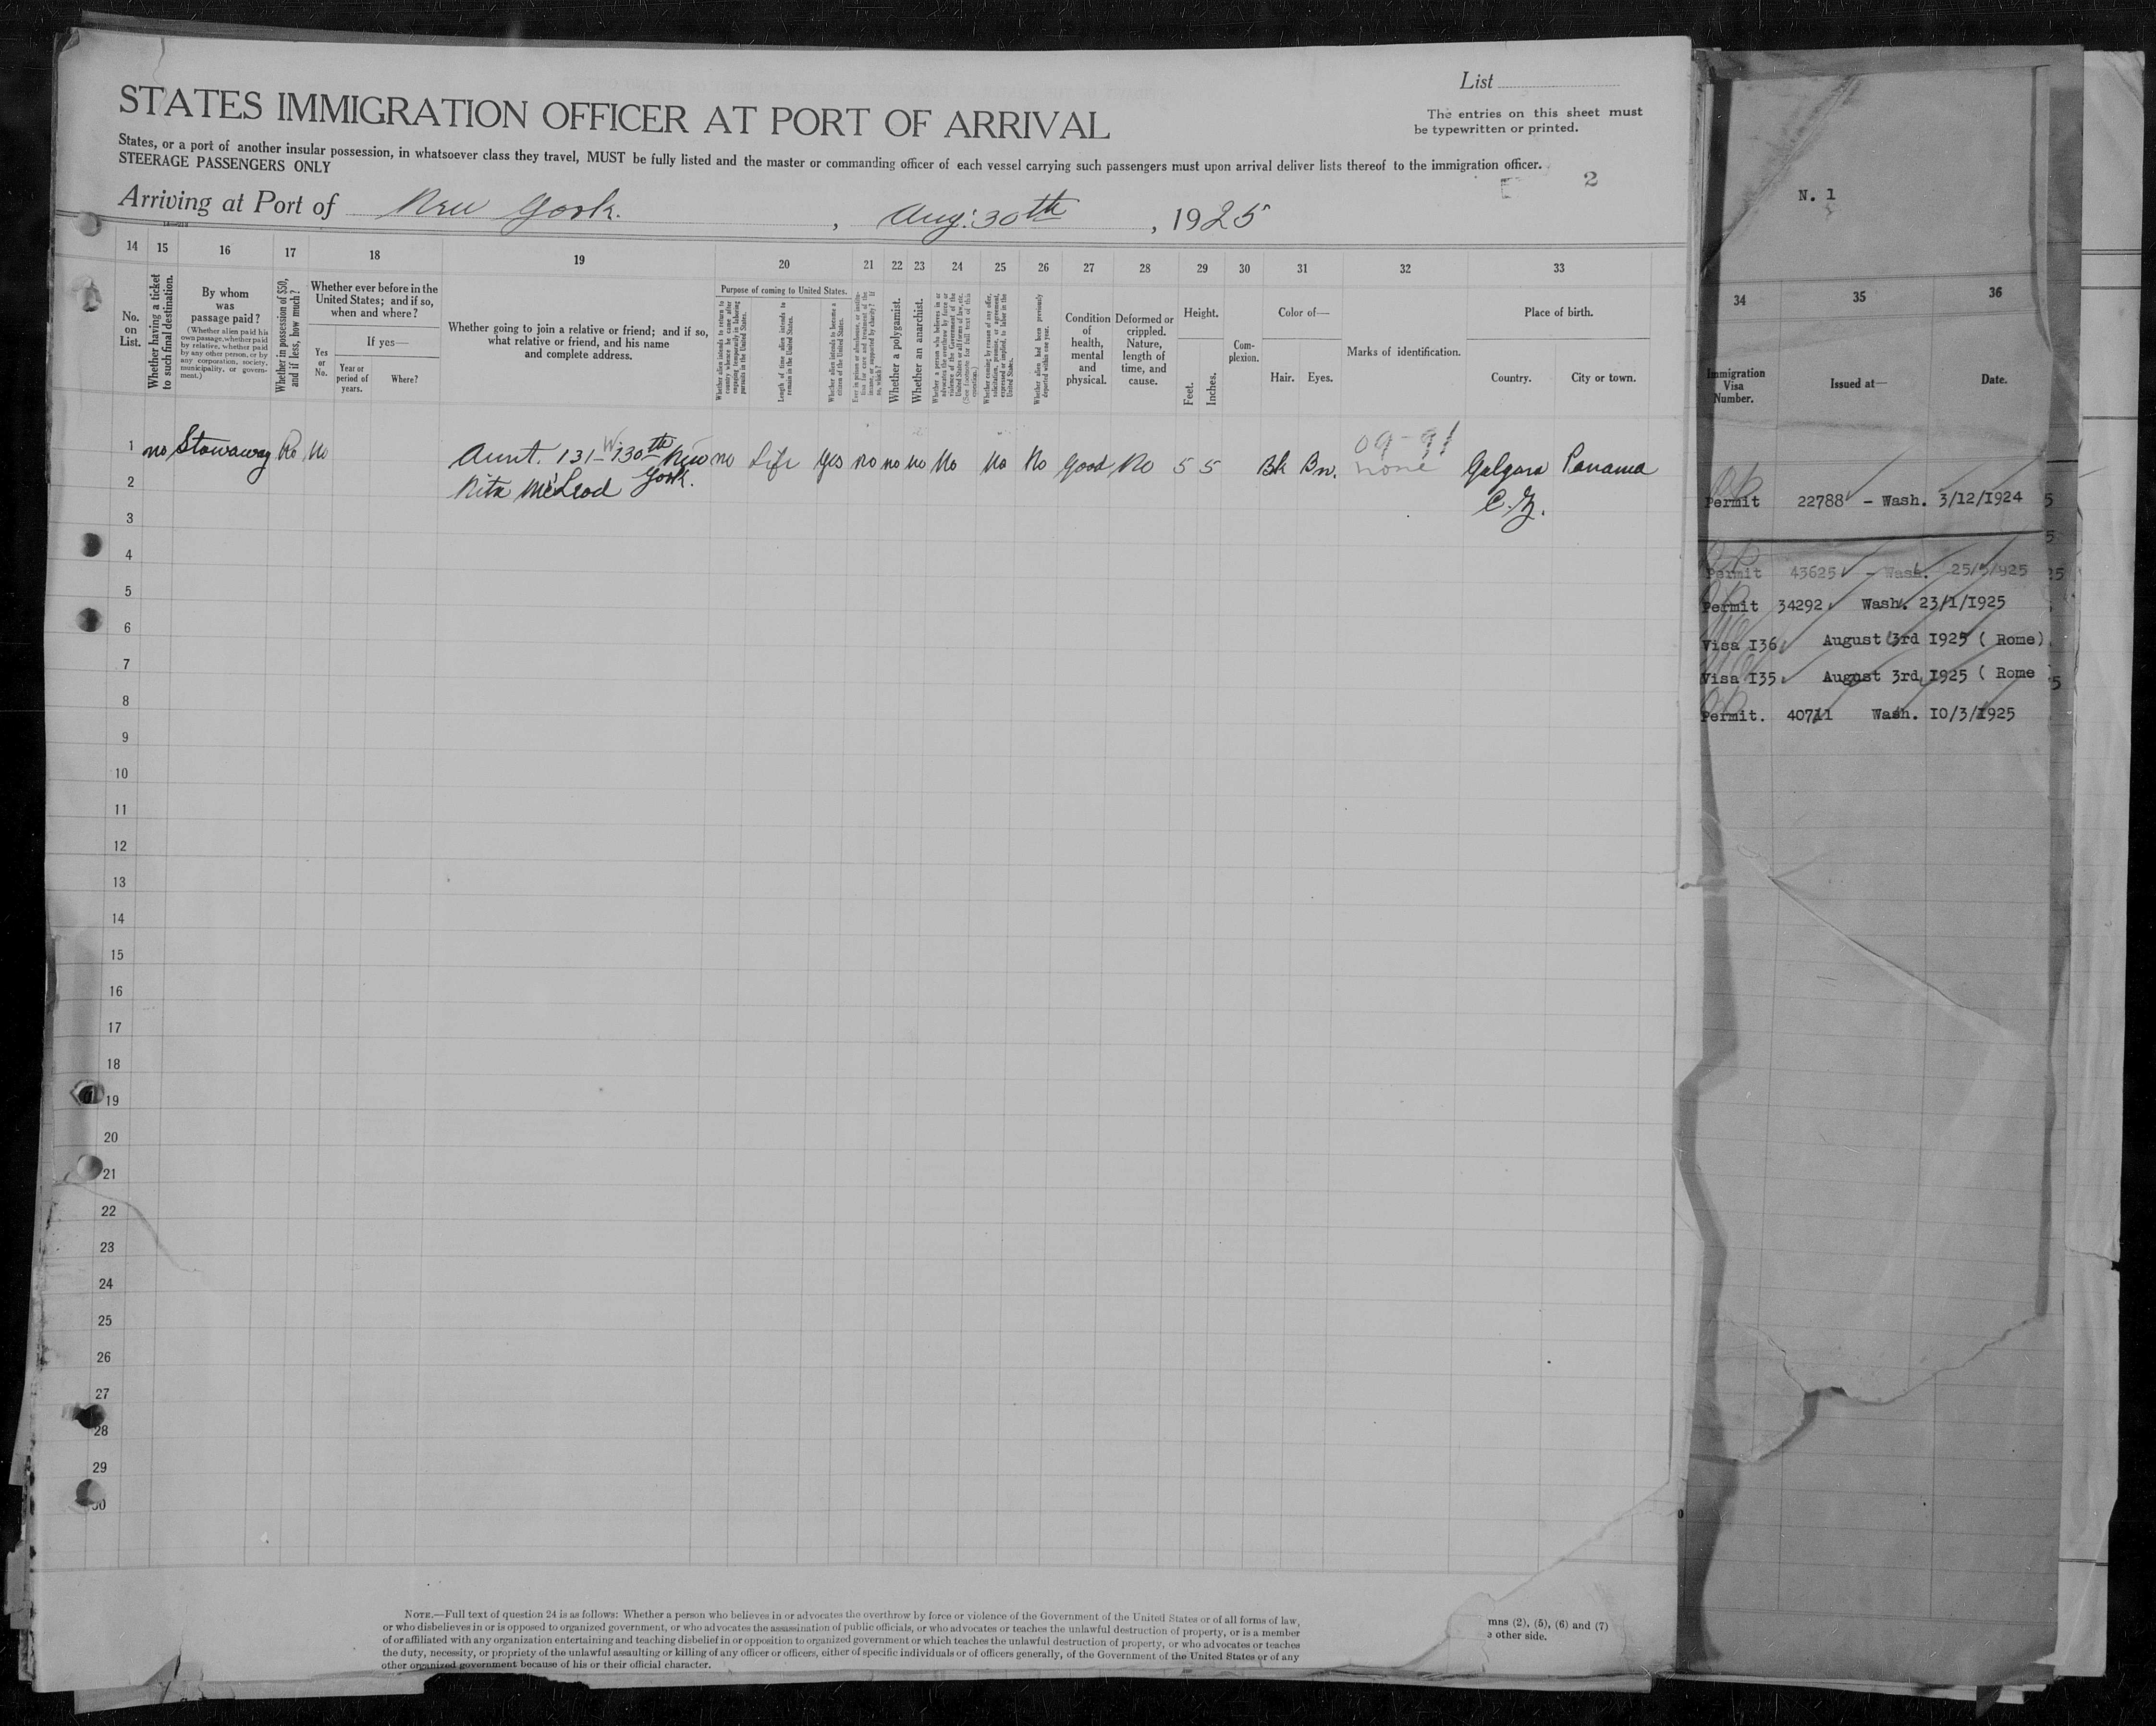 List
STATES IMMIGRATION OFFICER AT PORT OF ARRIVAL
The entries on this sheet must
be typewritten or printed.
States, or a port of another insular possession, in whatsoever class they travel, MUST be fully listed and the master or commanding officer of each vessel carrying such passengers must upon arrival deliver lists thereof to the immigration officer.
STEERAGE PASSENGERS ONLY
2
Arriving at Port of New York. , Aug: 30th , 1925
14 15 16 17 18 19 20 21 22 23 24 25 26 27 28 29 30 31 32 33
No.
on
List.
Whether having a ticket
to such final destination.
By whom
was
passage paid?
(Whether alien paid his
own passage, whether paid
by relative, whether paid
by any other person, or by
any corporation, society,
municipality, or govern-
ment.)
Whether in possession of $50,
and if less, how much?
Whether ever before in the
United States; and if so,
when and where?
Yes
or
No.
If yes—
Year or
period of
years.
Where?
Whether going to join a relative or friend; and if so,
what relative or friend, and his name
and complete address.
Purpose of coming to United States.
Whether alien intends to return to
country whence he came after
engaging temporarily in laboring
pursuits in the United States.
Length of time alien intends to
remain in the United States.
Whether alien intends to become a
citizen of the United States.
Ever in prison or almshouse, or institu-
tion for care and treatment of the
insane, or supported by charity? If
so, which?
Whether a polygamist.
Whether an anarchist.
Whether a person who believes in or
advocates the overthrow by force or
violence of the Government of the
United States or all forms of law, etc.
(See footnote for full text of this
question.)
Whether coming by reason of any offer,
solicitation, promise, or agreement,
expressed or implied, to labor in the
United States.
Whether alien had been previously
deported within one year.
Condition
of
health,
mental
and
physical.
Deformed or
crippled.
Nature,
length of
time, and
cause.
Height.
Feet.
Inches.
Com-
plexion.
Color of—
Hair. Eyes.
Marks of identification.
Place of birth.
Country. City or town.
09-91
1 no Stowaway No No Aunt. 131-W.130th New no Life Yes no no no No No No Good No 5 5 Bk Bn. none Galgara Panama
2 Rita McLeod York. C.Z.
3
4
5
6
7
8
9
10
11
12
13
14
15
16
17
18
19
20
21
22
23
24
25
26
27
28
29
30
NOTE.—Full text of question 24 is as follows: Whether a person who believes in or advocates the overthrow by force or violence of the Government of the United States or of all forms of law,
or who disbelieves in or is opposed to organized government, or who advocates the assassination of public officials, or who advocates or teaches the unlawful destruction of property, or is a member
of or affiliated with any organization entertaining and teaching disbelief in or opposition to organized government or which teaches the unlawful destruction of property, or who advocates or teaches
the duty, necessity, or propriety of the unlawful assaulting or killing of any officer or officers, either of specific individuals or of officers generally, of the Government of the United States or of any
other organized government because of his or their official character.
mns (2), (5), (6) and (7)
e other side.
N. 1
34 35 36
Immigration
Visa
Number.
Issued at—
Date.
Permit 22788 - Wash. 3/12/1924
Permit 43625 - Wash. 25/3/925
Permit 34292 Wash. 23/1/1925
Visa I36 August 3rd I925 ( Rome)
Visa I35 August 3rd I925 ( Rome
Permit. 40711 Wash. I0/3/I925